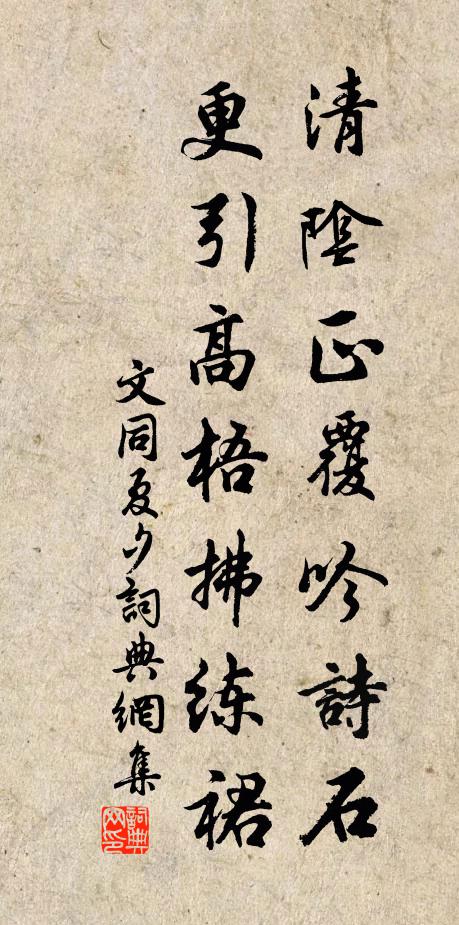 清陰正覆吟詩石
更引高梧拂練裙
文同夏夕詞典網集
詞典网印